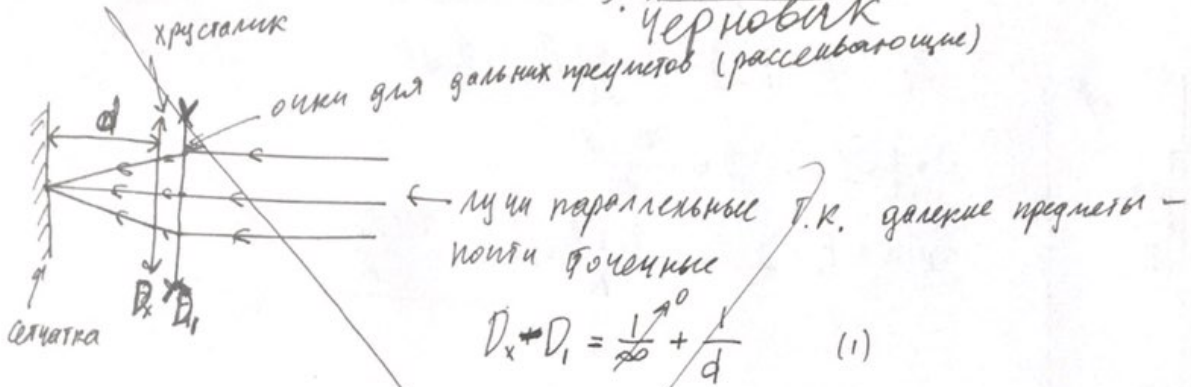 Черновик
хрусталик
очки для дальних предметов (рассеивающие)
d
← лучи параллельные т.к. далекие предметы –
почти точечные
Dₓ D₁
сетчатка
Dₓ - D₁ = 1/∞ ↗0 + 1/d (1)